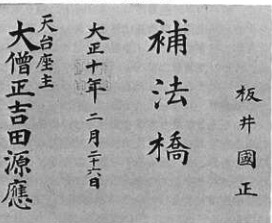 板井國正
補法橋
大正十年二月二十六日
天台座主
大僧正吉田源應